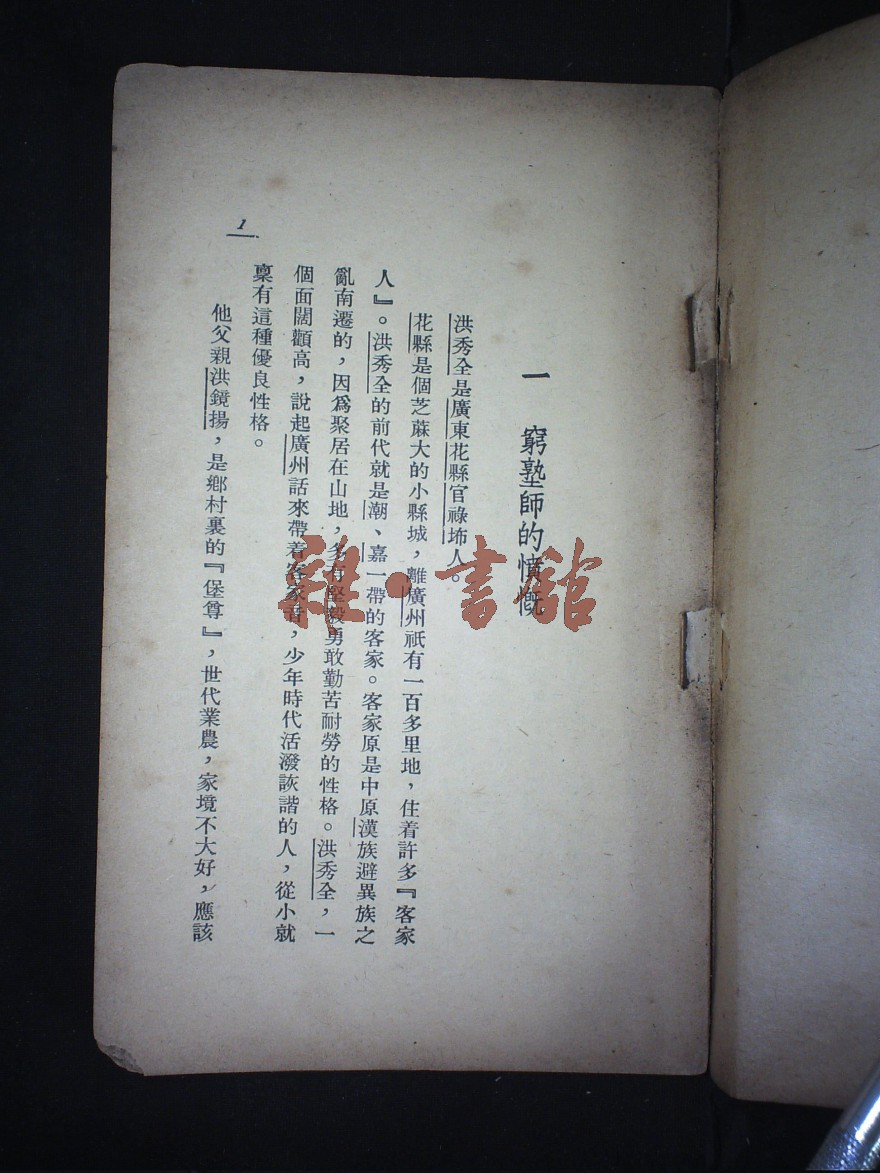 一 窮塾師的憤慨
洪秀全是廣東花縣官祿㘵人。
花縣是個芝蔴大的小縣城，離廣州祇有一百多里地，住着許多『客家
人』。洪秀全的前代就是潮、嘉一帶的客家。客家原是中原漢族避異族之
亂南遷的，因爲聚居在山地，多有堅毅勇敢勤苦耐勞的性格。洪秀全，一
個面闊顴高，說起廣州話來帶着客家音，少年時代活潑詼諧的人，從小就
稟有這種優良性格。
他父親洪鏡揚，是鄉村裏的『堡尊』，世代業農，家境不大好，應該
1
雜·書館